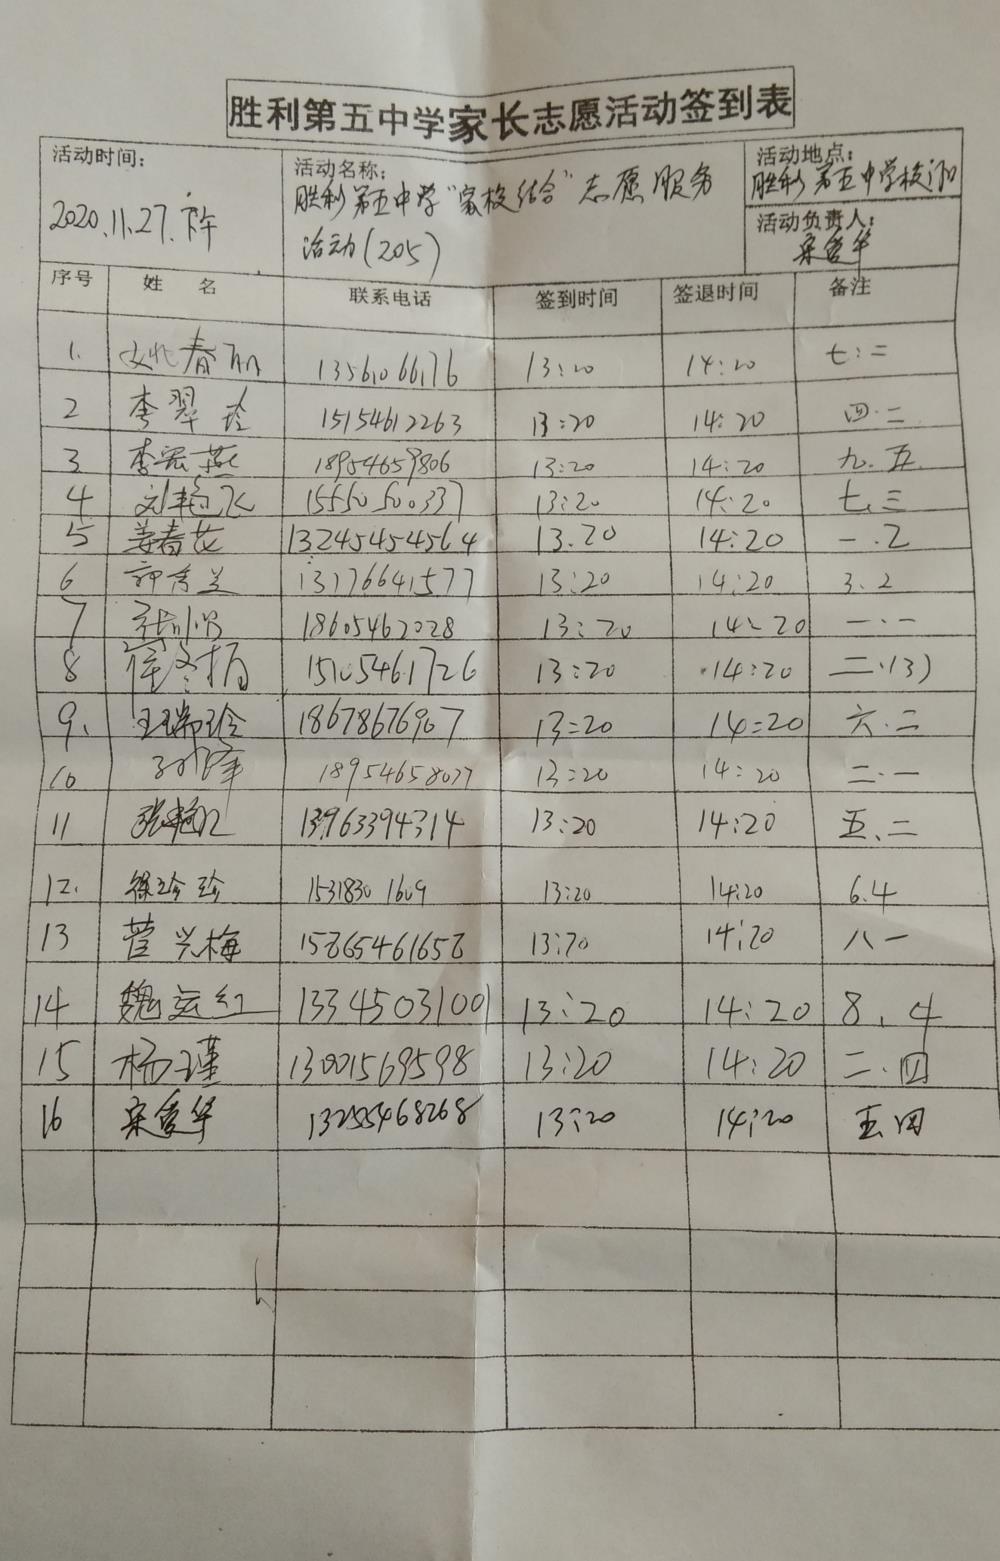 胜利第五中学家长志愿活动签到表
活动时间：
2020.11.27.下午
活动名称：
胜利第五中学"家校结合"志愿服务
活动(205)
活动地点：
胜利第五中学校门口
活动负责人：
宋爱华
序号 姓名 联系电话 签到时间 签退时间 备注
1. 春丽 13561066176 13:20 14:20 七:二
2 李翠玲 15154612263 13:20 14:20 四.二
3 李宏燕 18954659806 13:20 14:20 九.五.
4 刘艳飞 15550500337 13:20 14:20 七.三
5 姜春花 13245454564 13.20 14:20 一.2
6 郭秀兰 13176641577 13:20 14:20 3.2
7 18605462028 13:20 14:20 一.一
8 崔冬梅 15105461726 13:20 14:20 二.(3)
9. 王瑞玲 18678676907 13:20 14:20 六.二
10 孙峰 18954658077 13:20 14:20 二.一
11 张艳 13963394314 13:20 14:20 五.二
12. 徐珍珍 15318301609 13:20 14:20 6.4
13 菅兴梅 15865461658 13:20 14:20 八一
14 魏运红 13345031001 13:20 14:20 8.4
15 杨瑾 13001569598 13:20 14:20 二.四
16 宋爱华 13255468268 13:20 14:20 五四